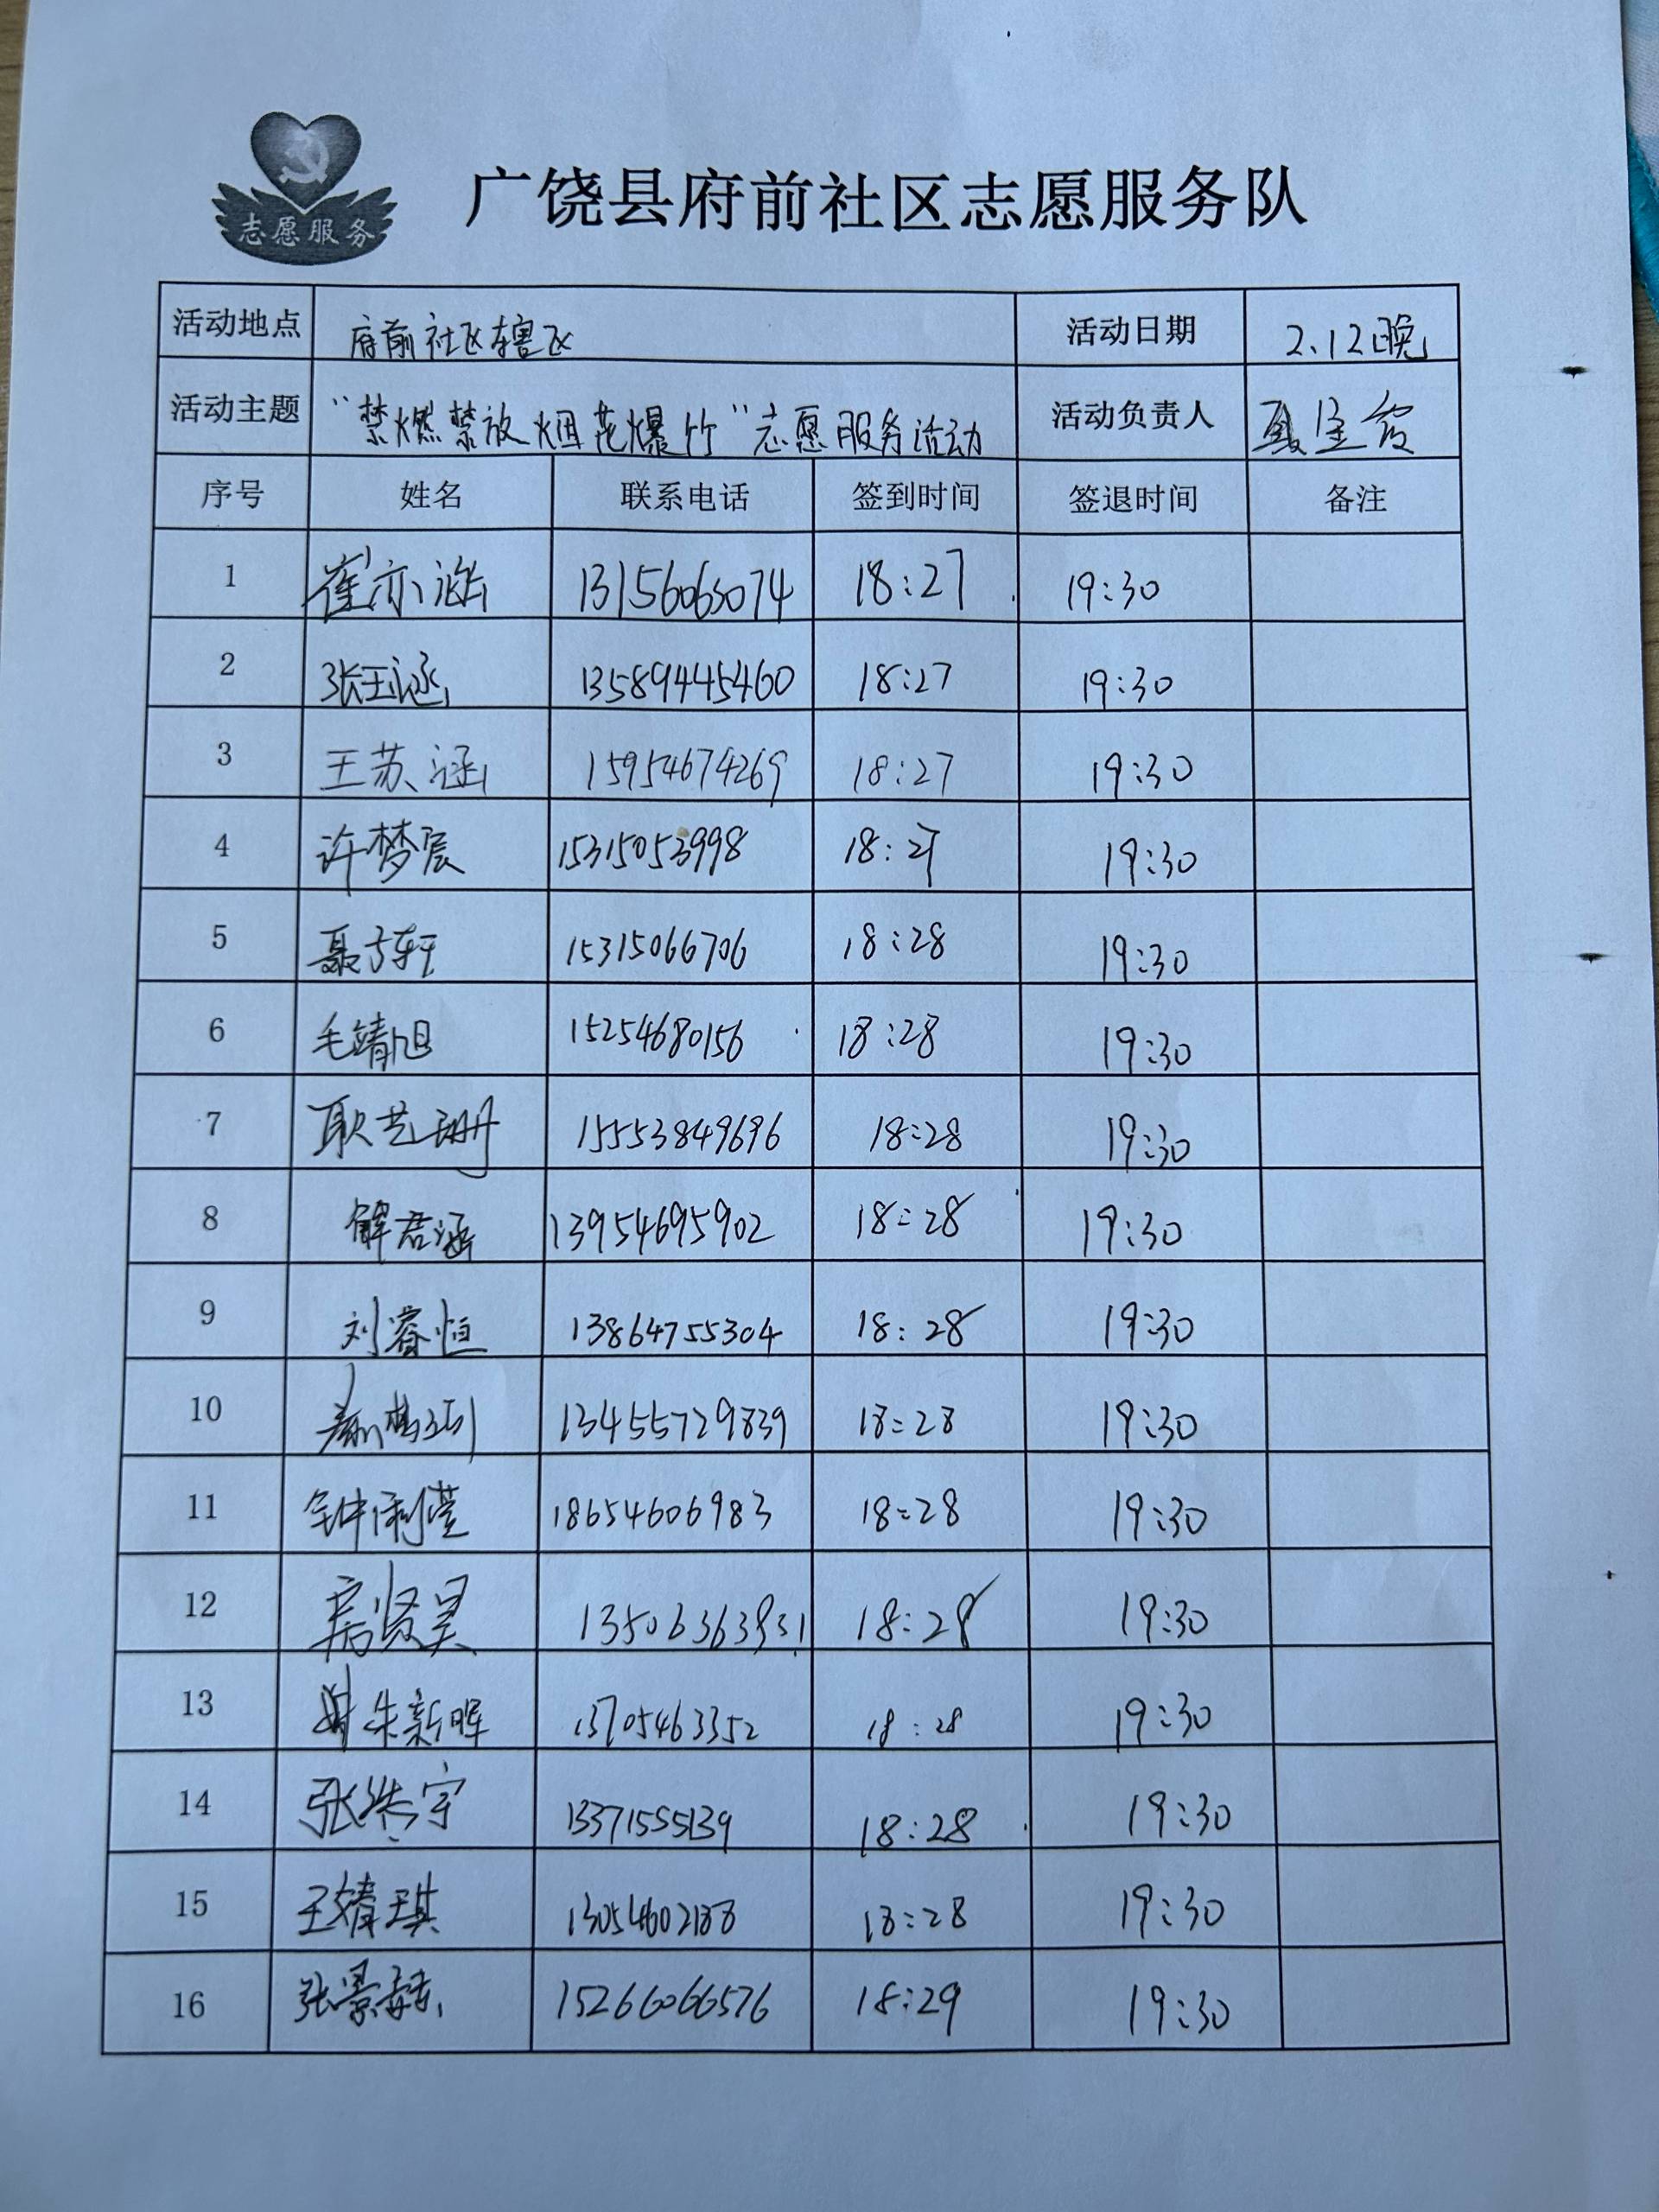 志愿服务
广饶县府前社区志愿服务队
活动地点 府前社区辖区 活动日期 2.12晚
活动主题 “禁燃禁放烟花爆竹”志愿服务活动 活动负责人
序号 姓名 联系电话 签到时间 签退时间 备注
1 崔亦涵 13156065074 18:27 19:30
2 张玉涵 13589445460 18:27 19:30
3 王苏涵 15954674269 18:27 19:30
4 许梦宸 15315053998 18:27 19:30
5 聂子轩 15315066706 18:28 19:30
6 毛靖旭 15254680156 18:28 19:30
7 耿艺珊 15553849696 18:28 19:30
8 解君涵 13954695902 18:28 19:30
9 刘睿恒 13864755304 18:28 19:30
10 13455729839 18:28 19:30
11 钟俐莹 18654606983 18:28 19:30
12 房贤昊 18:28 19:30
13 朱新晖 13705463352 18:28 19:30
14 张浩宇 13371555139 18:28 19:30
15 王婧琪 13054602188 18:28 19:30
16 张景赫 15266066576 18:29 19:30